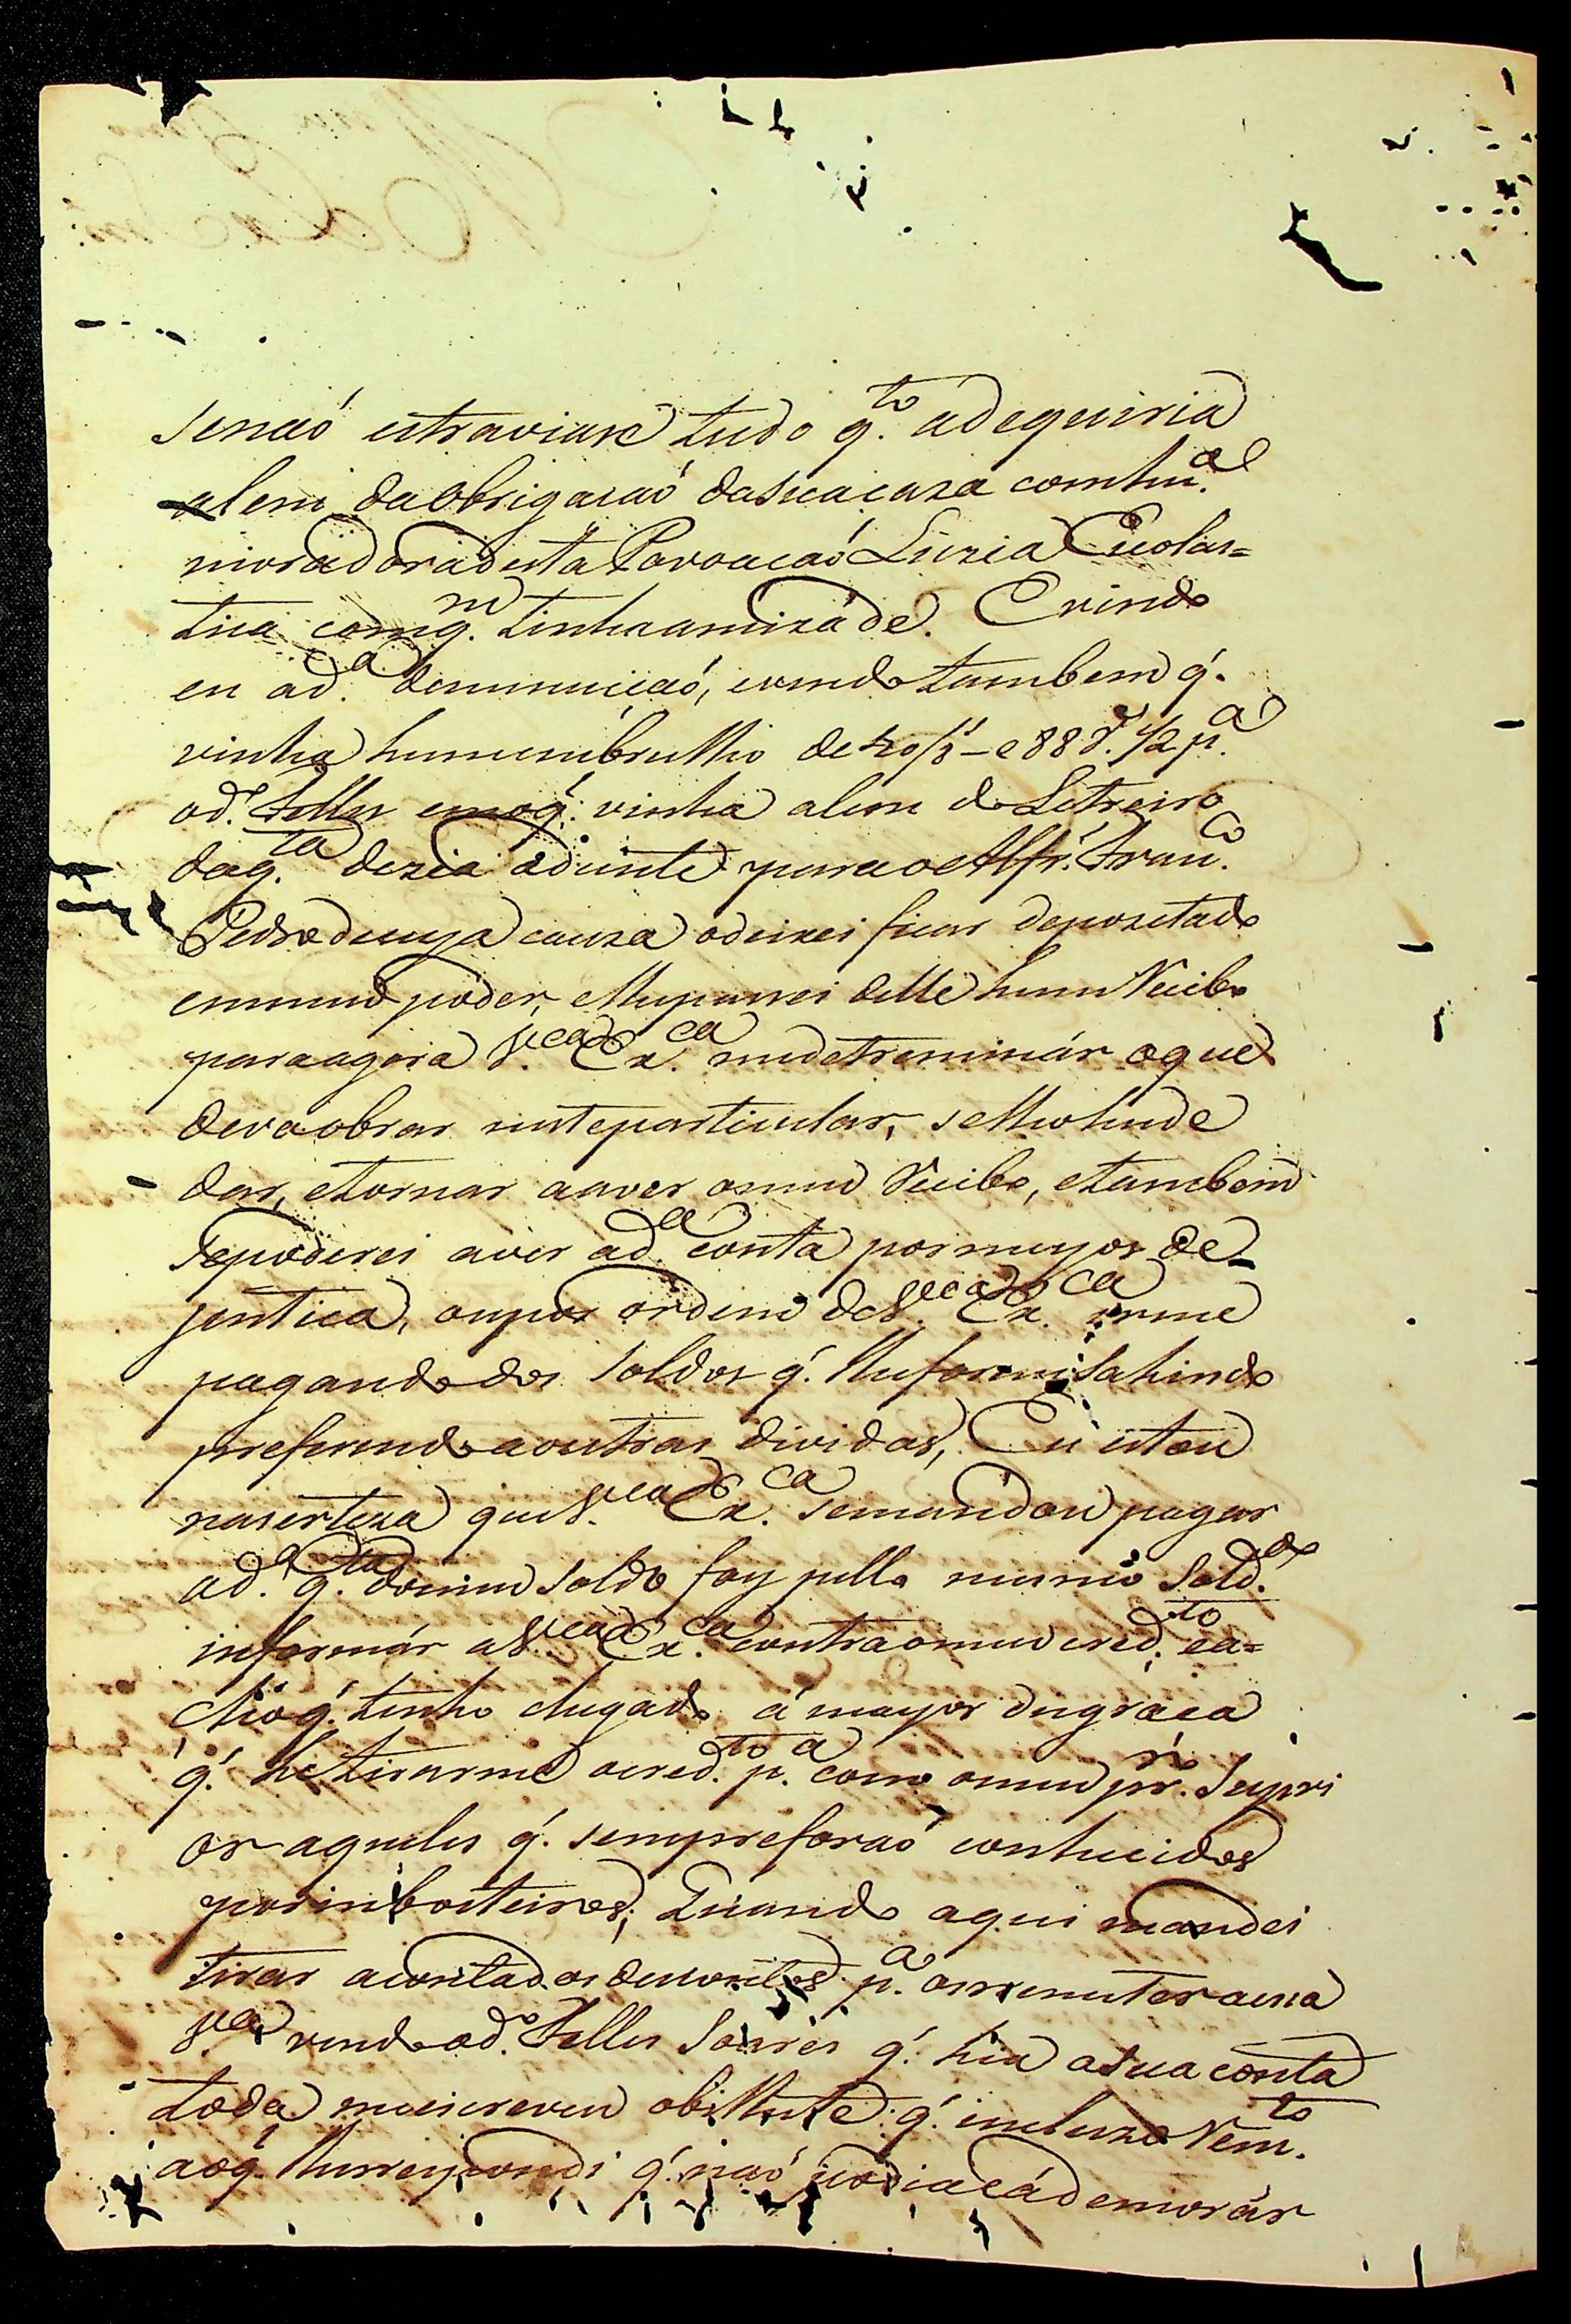 senaõ estraviase tudo q.to adequiria
alem da obrigacaõ da sua caza com huã
moradora desta Povoacaõ Luzia Escolas=
tica com q.m tinha amizade. E vindo
eu a d.a denunciçaõ, e vendo tambem q.
vinha hum embrulho de 20/8 - e 88 r. 1/2 p.a
o d.o Telles em o q. vinha alem do Letreiro
da q.ta dezia adiante para o Alfr.s Fran.co
Pedro de cuja cauza o deixei ficar depozetado
em meu poder, e lhe passei delle hum Recibo
para agora V.ca Ex.ca me detreminár o que
devo obrar neste particular, se lho hei de
dar, e tornar a aver o meu Recibo, e tambem
se poderei aver a d.a conta por meyos de
justica, ou por ordem de V.ca Ex.ca irme
pagando dos soldos q. lhe forem sahindo
preferindo a outras dividas, Eu estou
na serteza que V.ca Ex.ca se mandou pagar
a d.a q.ta do meu soldo foy pello mesmo sold.do
informár a V.ca Ex.ca contra o meu cred.to ea=
cho q. tenho chegado á mayor desgraca
q. he tirarme o cred.to p.a com o meu pr.o Superi
or aqueles q. sempre foraõ conhecidos
por inbosteiros; Quando aqui mandei
tirar a conta dos descontos p.a os remeter a essa
V.a vendo o d.o Telles Soares q. hia a sua conta
toda me escreveu o bilhete q. incluzo Rem.to
ao q. lhe respondi q. naõ podia cá demorár